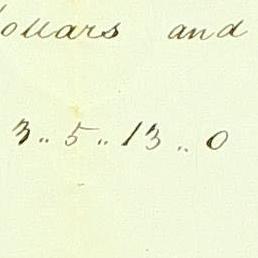 dollars and
3.. 5.. 13.. 0